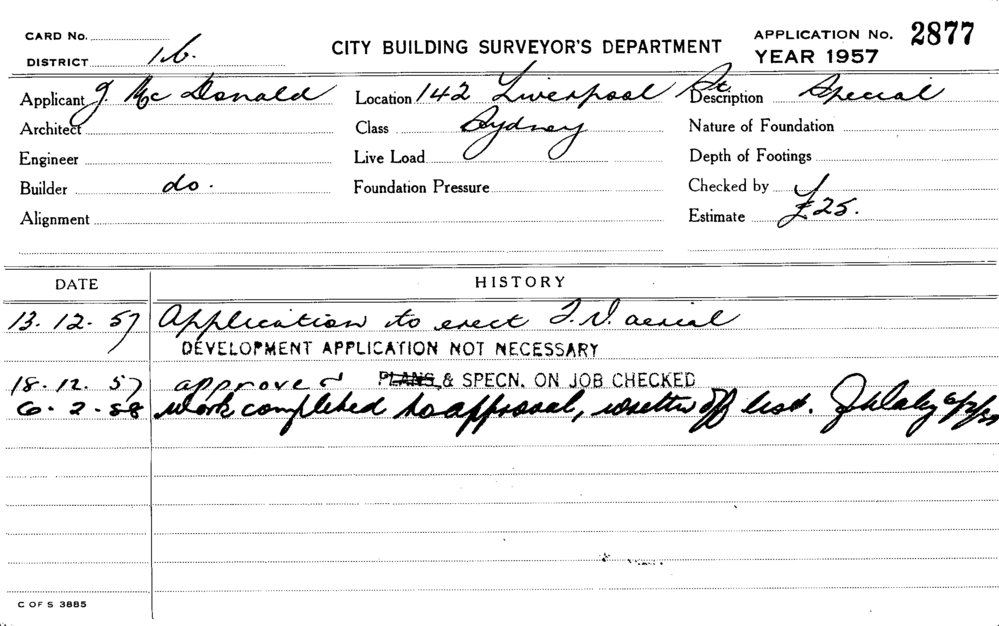 CARD No.
DISTRICT 16.
CITY BUILDING SURVEYOR'S DEPARTMENT
APPLICATION No. 2877
YEAR 1957
Applicant J. Mc Donald
Location 142 Liverpool St.
Description Special
Architect
Class Sydney
Nature of Foundation
Engineer
Live Load
Depth of Footings
Builder do.
Foundation Pressure
Checked by
Alignment
Estimate £25.
DATE HISTORY
13. 12. 57 Application to erect T.V. aerial
DEVELOPMENT APPLICATION NOT NECESSARY
18. 12. 57 approved PLANS & SPECN. ON JOB CHECKED
6. 2. 58 Work completed to approval, written off list.
C OF S 3885